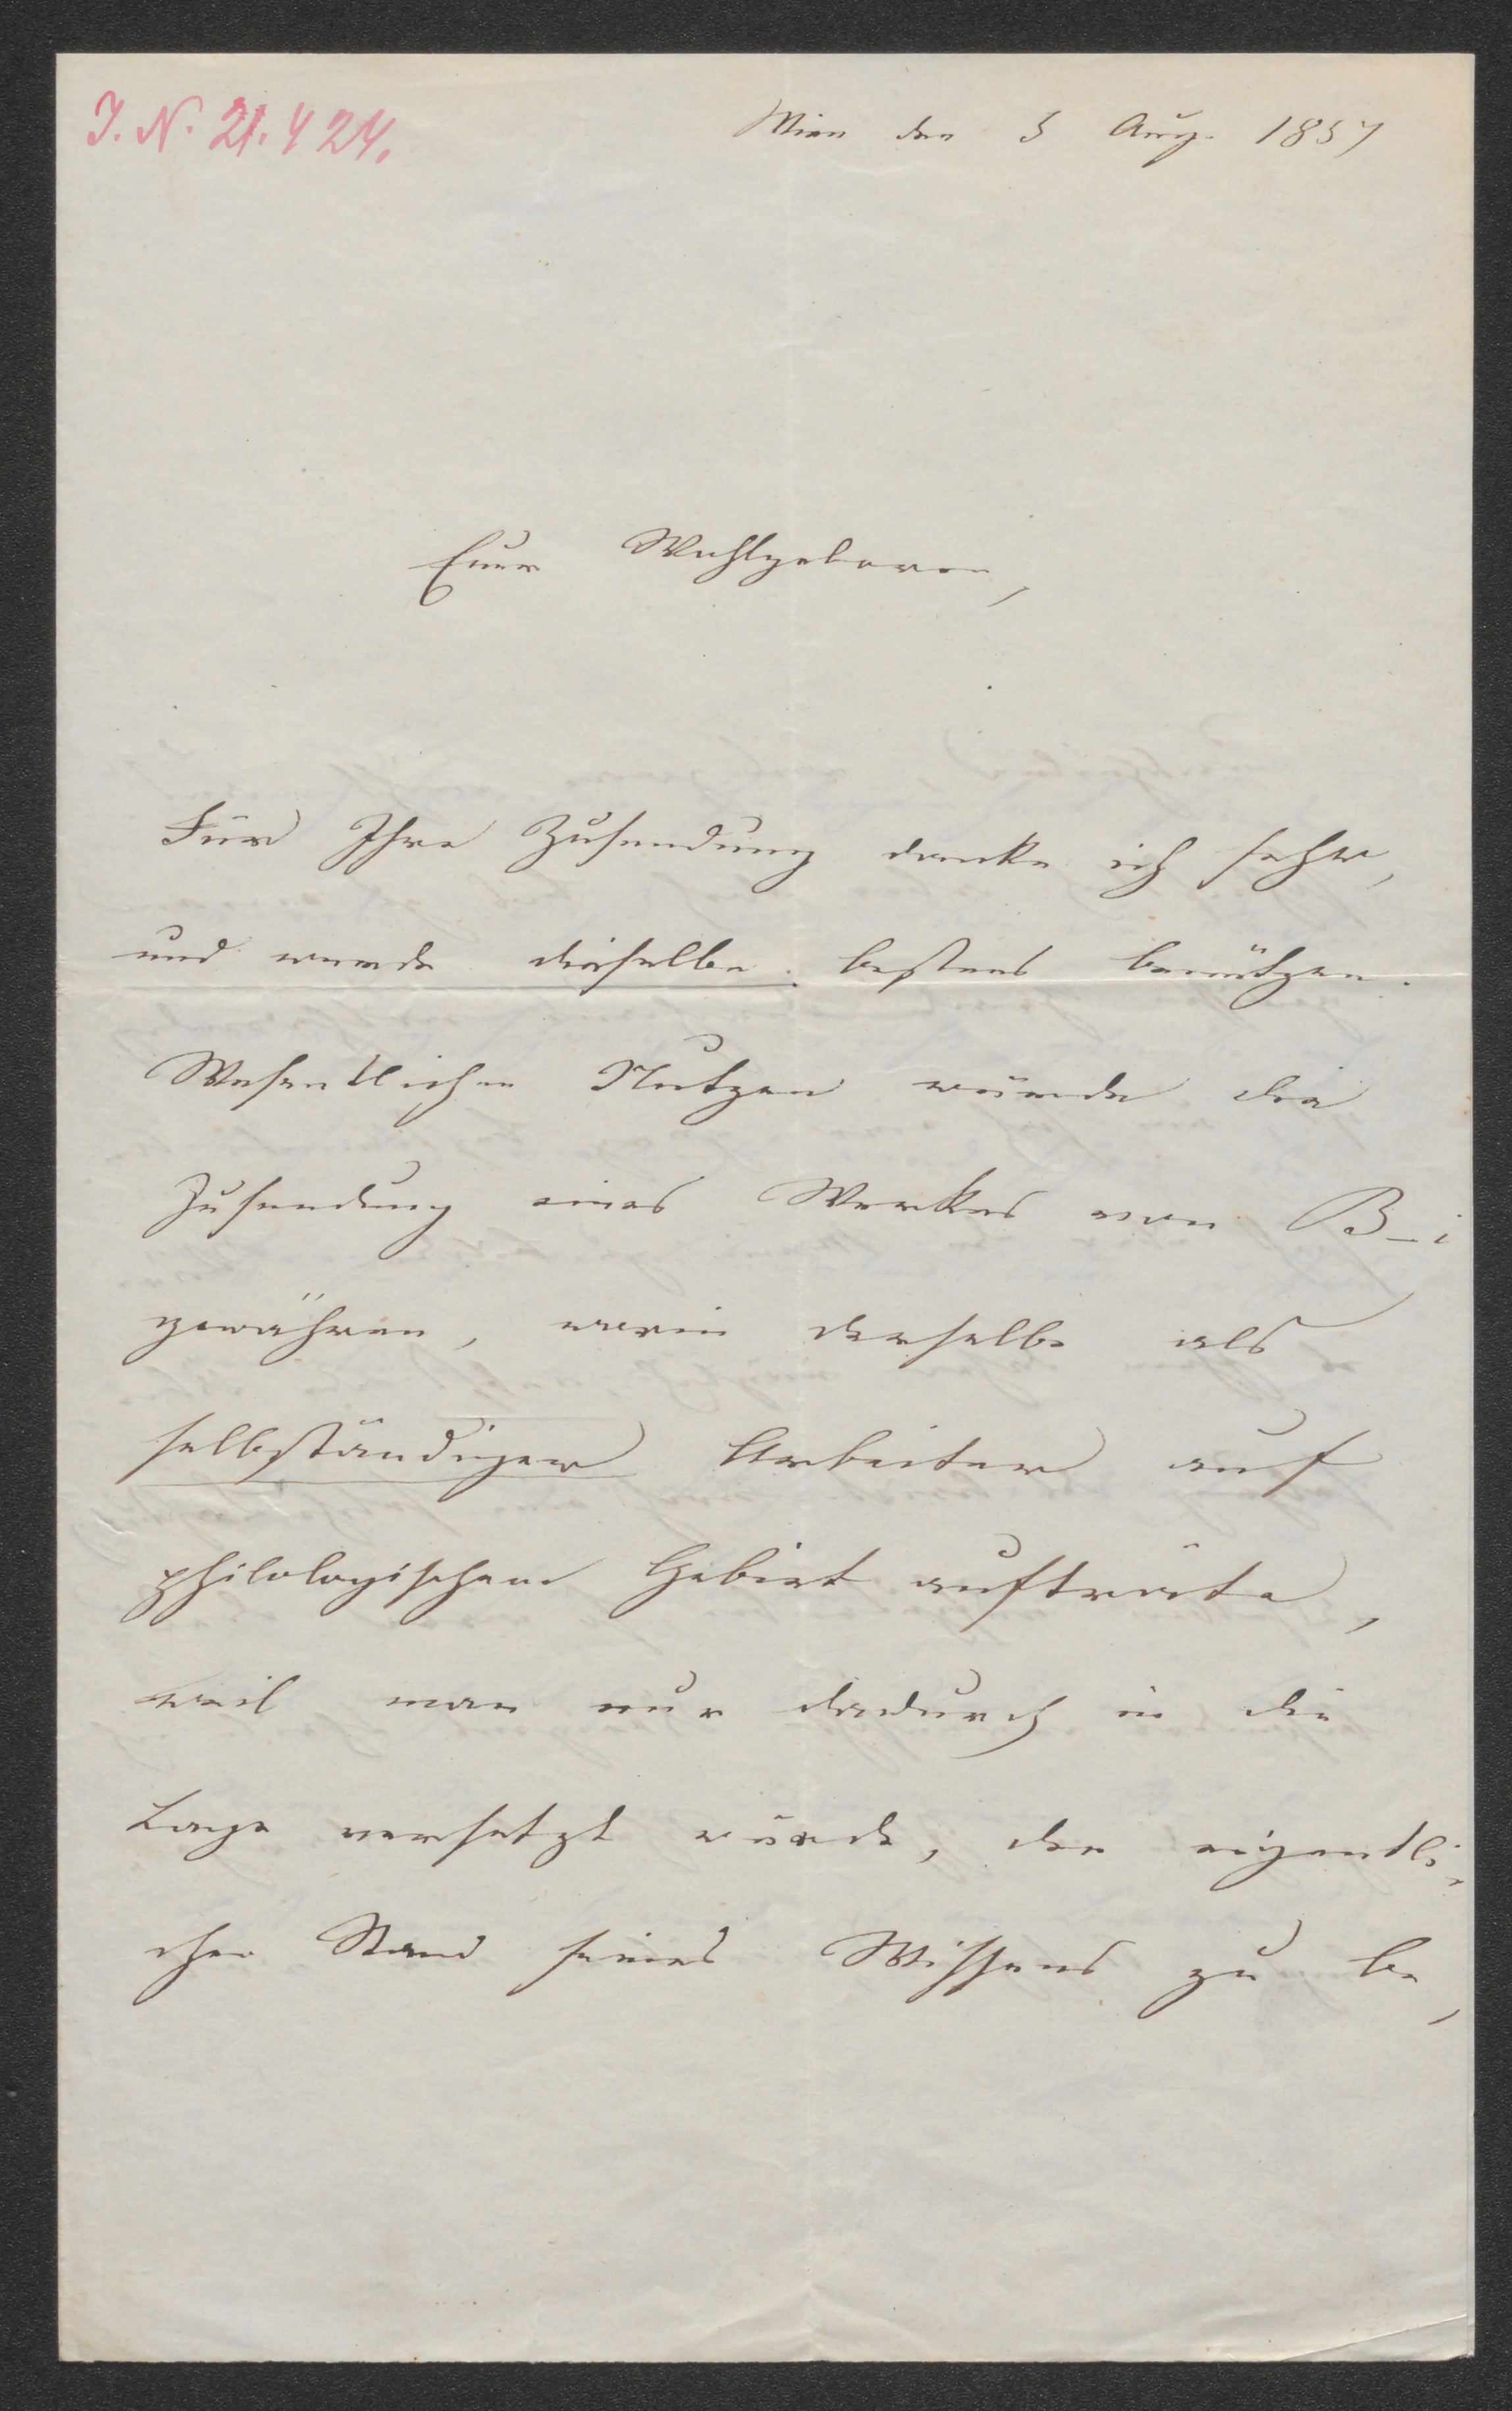 J. N. 21.424.
Wien den 5 Aug. 1857
Euer Wohlgeboren,
Für Ihre Zusendung danke ich sehr,
und werde dieselbe bestens benützen.
Wesentlichen Nutzen würde die
Zusendung eines Werkes von B–i
gewähren, worin derselbe als
selbständiger Arbeiter auf
philologischem Gebiet aufträte,
weil man nur dadurch in die
Lage versetzt würde, den eigentli-
chen Stand seines Wissens zu be-